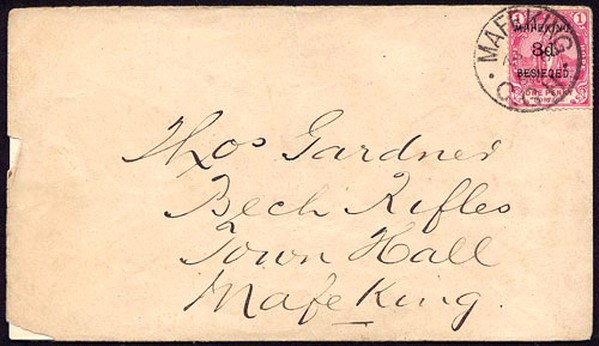 MAFEKING
C.G.H.
1 1
MAFEKING,
3d.
BESIEGED.
ONE PENNY
Thos Gardner
Bech Rifles
Town Hall
Mafeking.